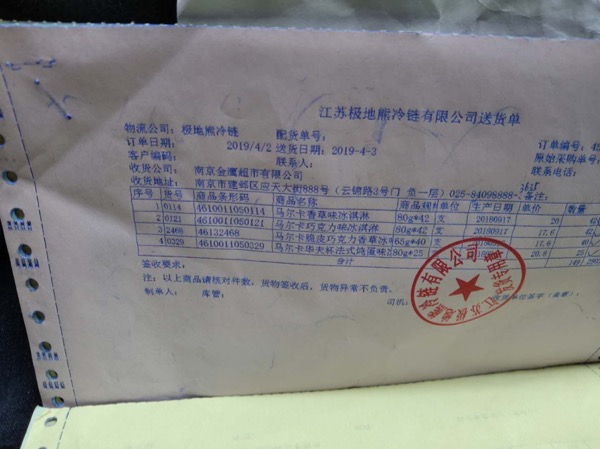 江苏极地熊冷链有限公司送货单
物流公司: 极地熊冷链 配货单号:
订单日期: 2019/4/2 送货日期: 2019-4-3 订单号:
客户编码: 联系人: 原始采购单号:
收货公司: 南京金鹰超市有限公司 联系电话:
收货地址: 南京市建邺区应天大街888号 (云锦路3号门 负一层) 025-84098888- 备注:
序号 货号 商品条形码 商品名称 商品规格 单位 生产日期 单价 数量
1 0114 4610011050114 马尔卡香草味冰淇淋 80g*42 支 20180917 20
2 0121 4610011050121 马尔卡巧克力味冰淇淋 80g*42 支 20180917 17.6
3 2468 46132468 马尔卡脆皮巧克力香草冰 65g*40 支 17.6
4 0329 4610011050329 马尔卡华夫杯法式炖蛋味 80g*25 支 20.8
合计
签收要求:
注: 以上商品请核对件数, 货物签收后, 货物异常不负责。
制单人: 库管: 司机: